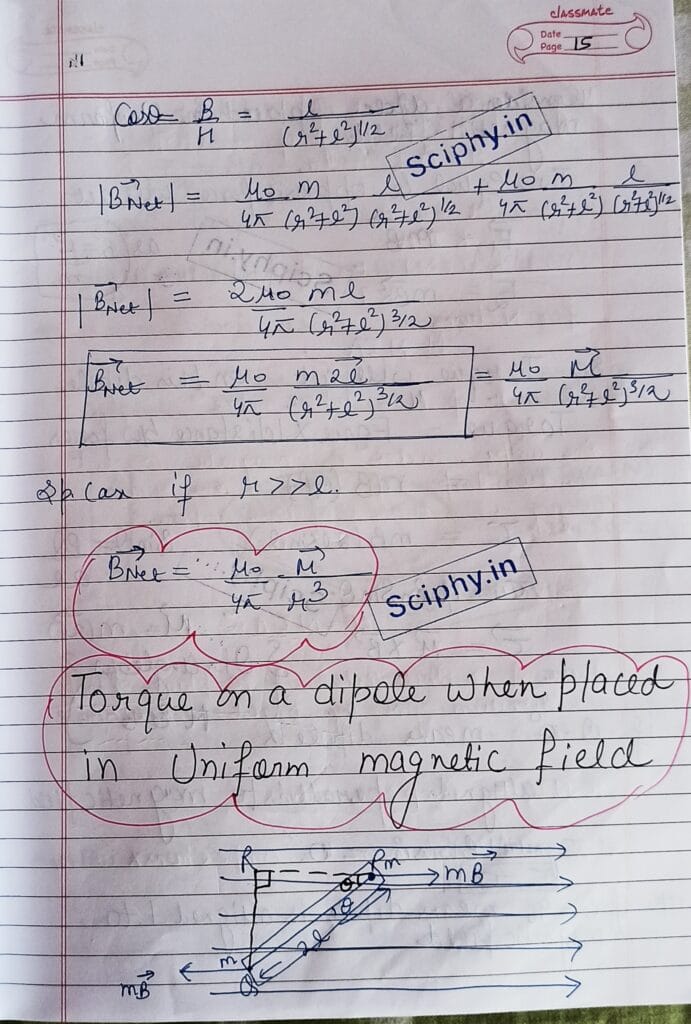 classmate
Date
Page 15
Cosθ = B/H = l/(r²+l²)^1/2
Sciphy.in
|B⃗Net| = μ₀/4π m/(r²+l²) l/(r²+l²)^1/2 + μ₀/4π m/(r²+l²) l/(r²+l²)^1/2
Sciphy.in
|B⃗Net| = 2μ₀/4π ml/(r²+l²)^3/2
B⃗Net = μ₀/4π m2l⃗/(r²+l²)^3/2 = μ₀/4π M⃗/(r²+l²)^3/2
if r>>l.
B⃗Net = μ₀/4π M⃗/r³
Sciphy.in
Torque on a dipole when placed
in Uniform magnetic field
R θ Pm mB⃗
θ
2l
m
mB⃗